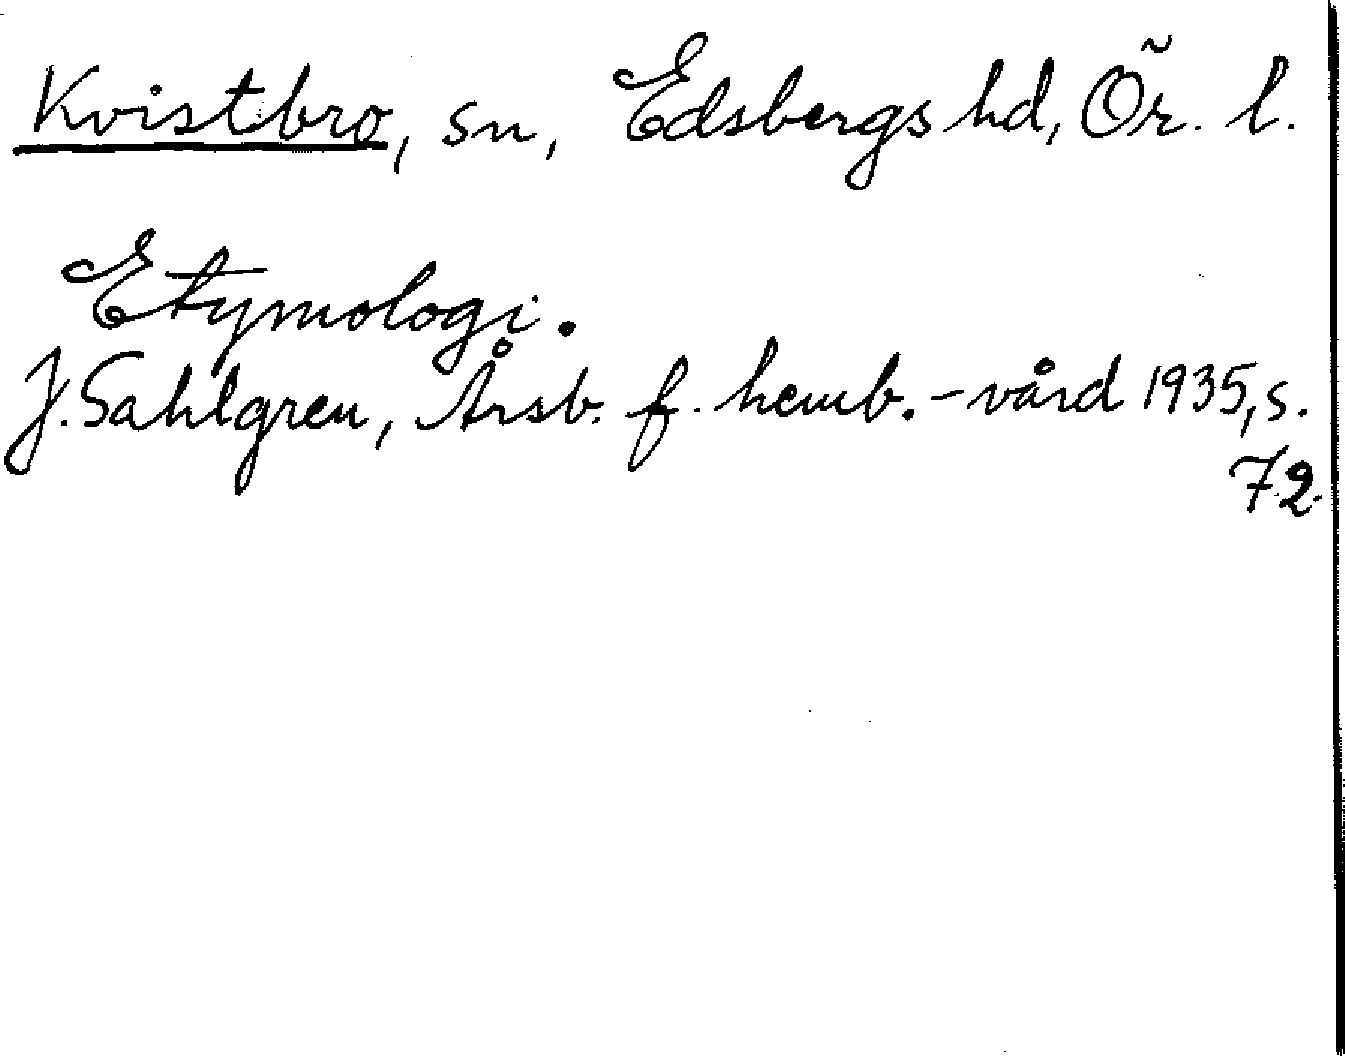 Kvistbro, sn, Edsbergs hd, Ör. l.
Etymologi.
J. Sahlgren, Årsb. f. hemb.-vård 1935, s.
72.